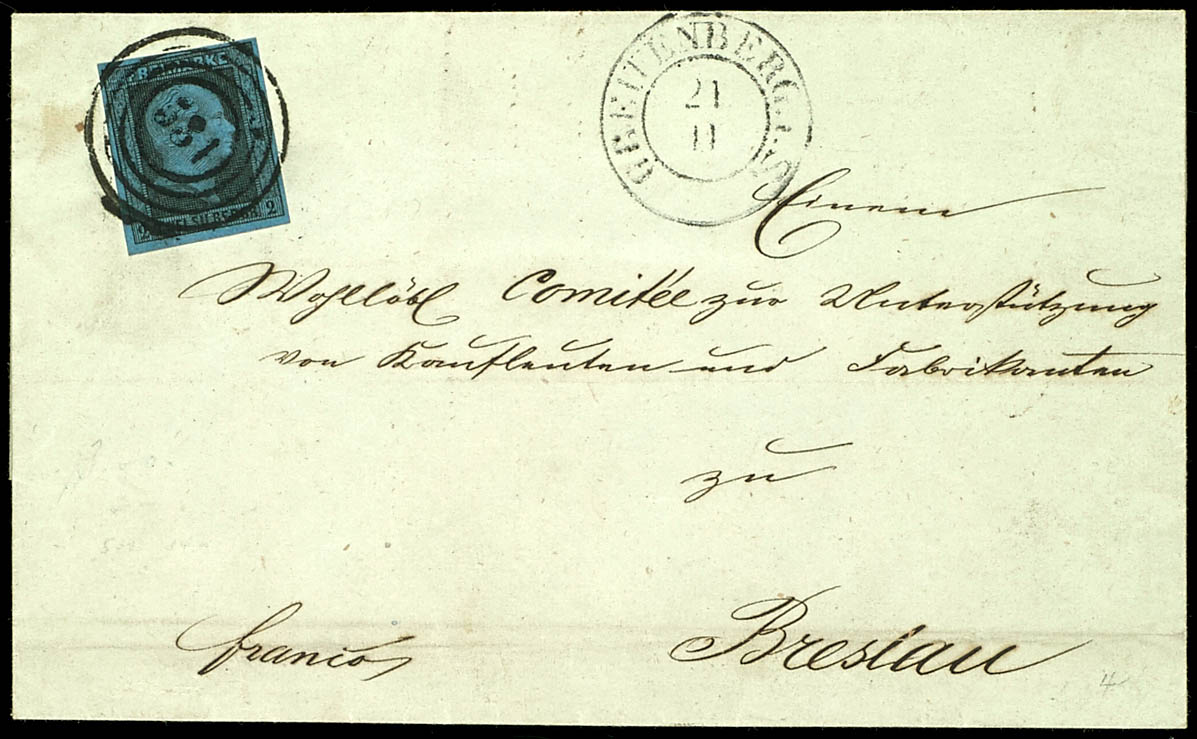 FREIMARKE
2 ZWEI SILBERGR. 2
GREIFENBERG I/S.
21
11
Einem
Wohllöbl Comitée zur Unterstützung
von Kaufleuten und Fabrikanten
zu
Breslau
franco
4